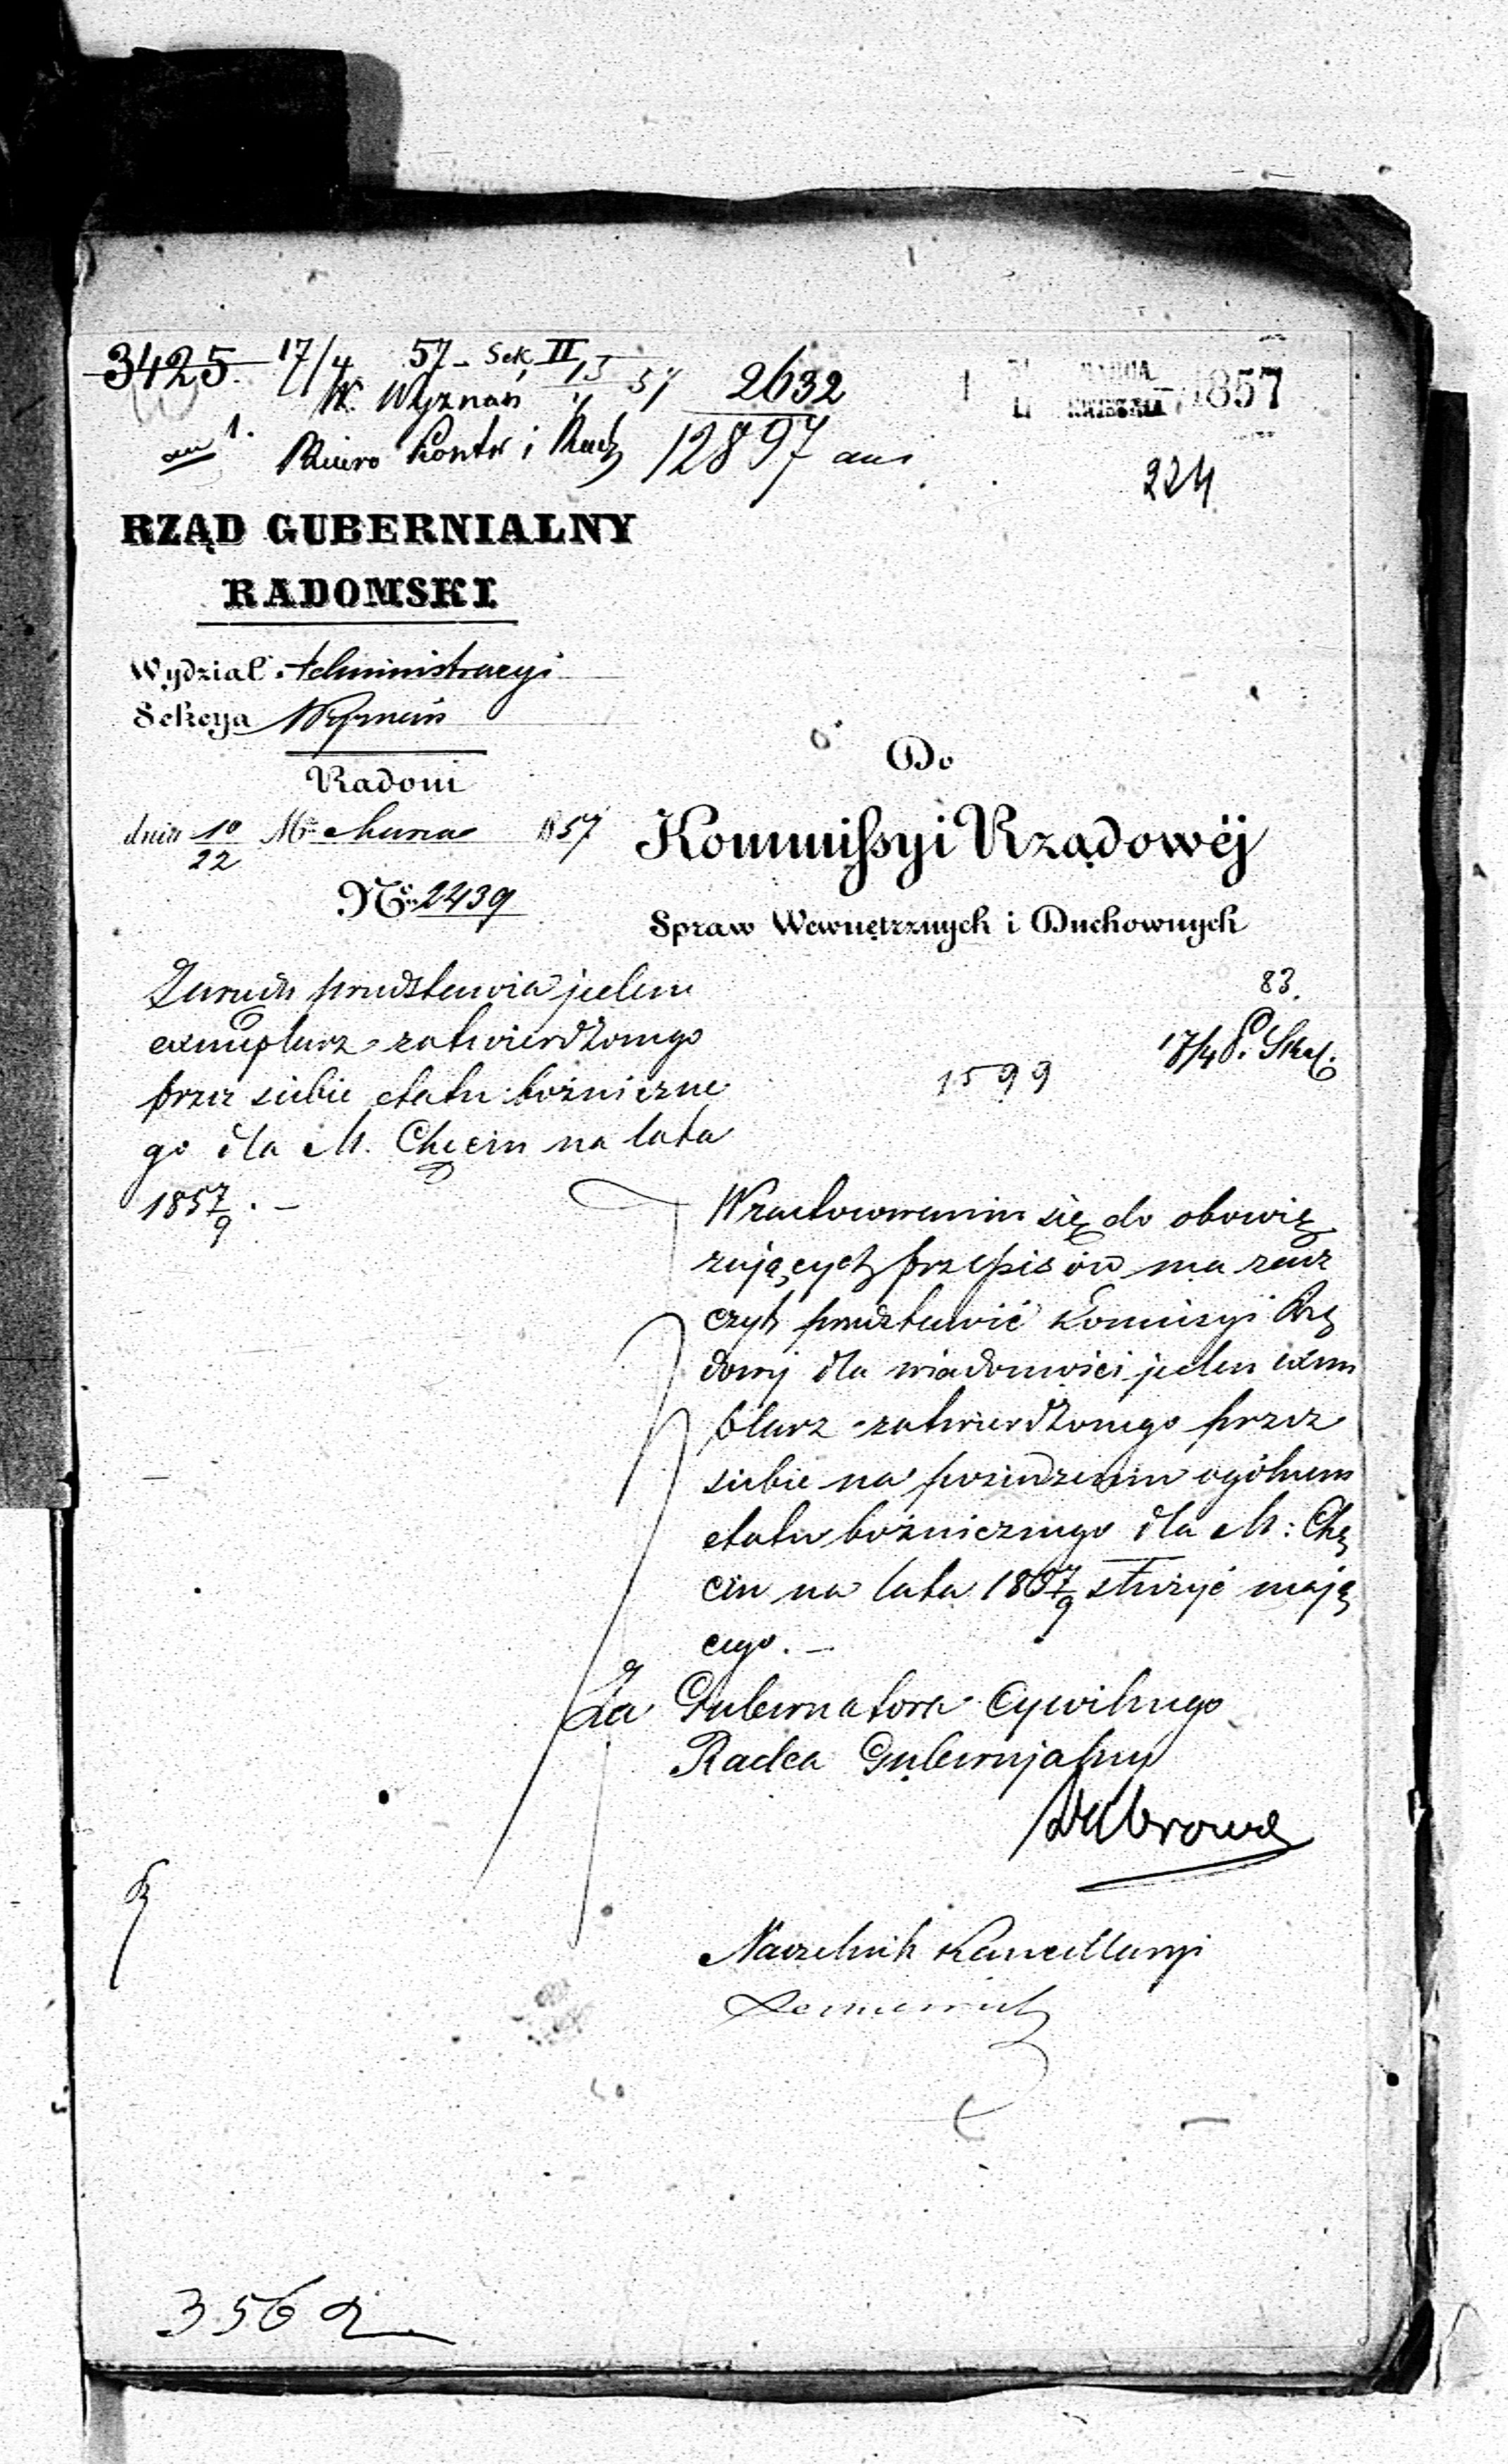 3425. 17/4 57 - Sek. II 13/4 57 2632 1857
W. Wyznań
an 1. Biuro Kontr i Rach 12897 an 1
224
RZĄD GUBERNIALNY
RADOMSKI
Wydział Administracyi
Sekcya Wyznań
Radom
dnia 10/22 Marca 1857
No 2439
Do
Kommissyi Rządowéj
Spraw Wewnętrznych i Duchownych
Rząd przedstawia jeden
exemplarz zatwierdzonego
przez siebie etatu bożniczne
go dla M. Chęcin na lata
1857/9. –
83.
17/4
1599
W zastosowaniu się do obowią
zujących przepisów ma zasz
czyt przedstawić Komisyi Rzą
dowej dla wiadomości jeden exem
plarz zatwierdzonego przez
siebie na posiedzeniu ogólnem
etatu bożnicznego dla M: Chę
cin na lata 1857/9 służyć mają
cego. –
Za Gubernatora Cywilnego
Radca Gubernjalny
Naczelnik Kancellaryi
3562